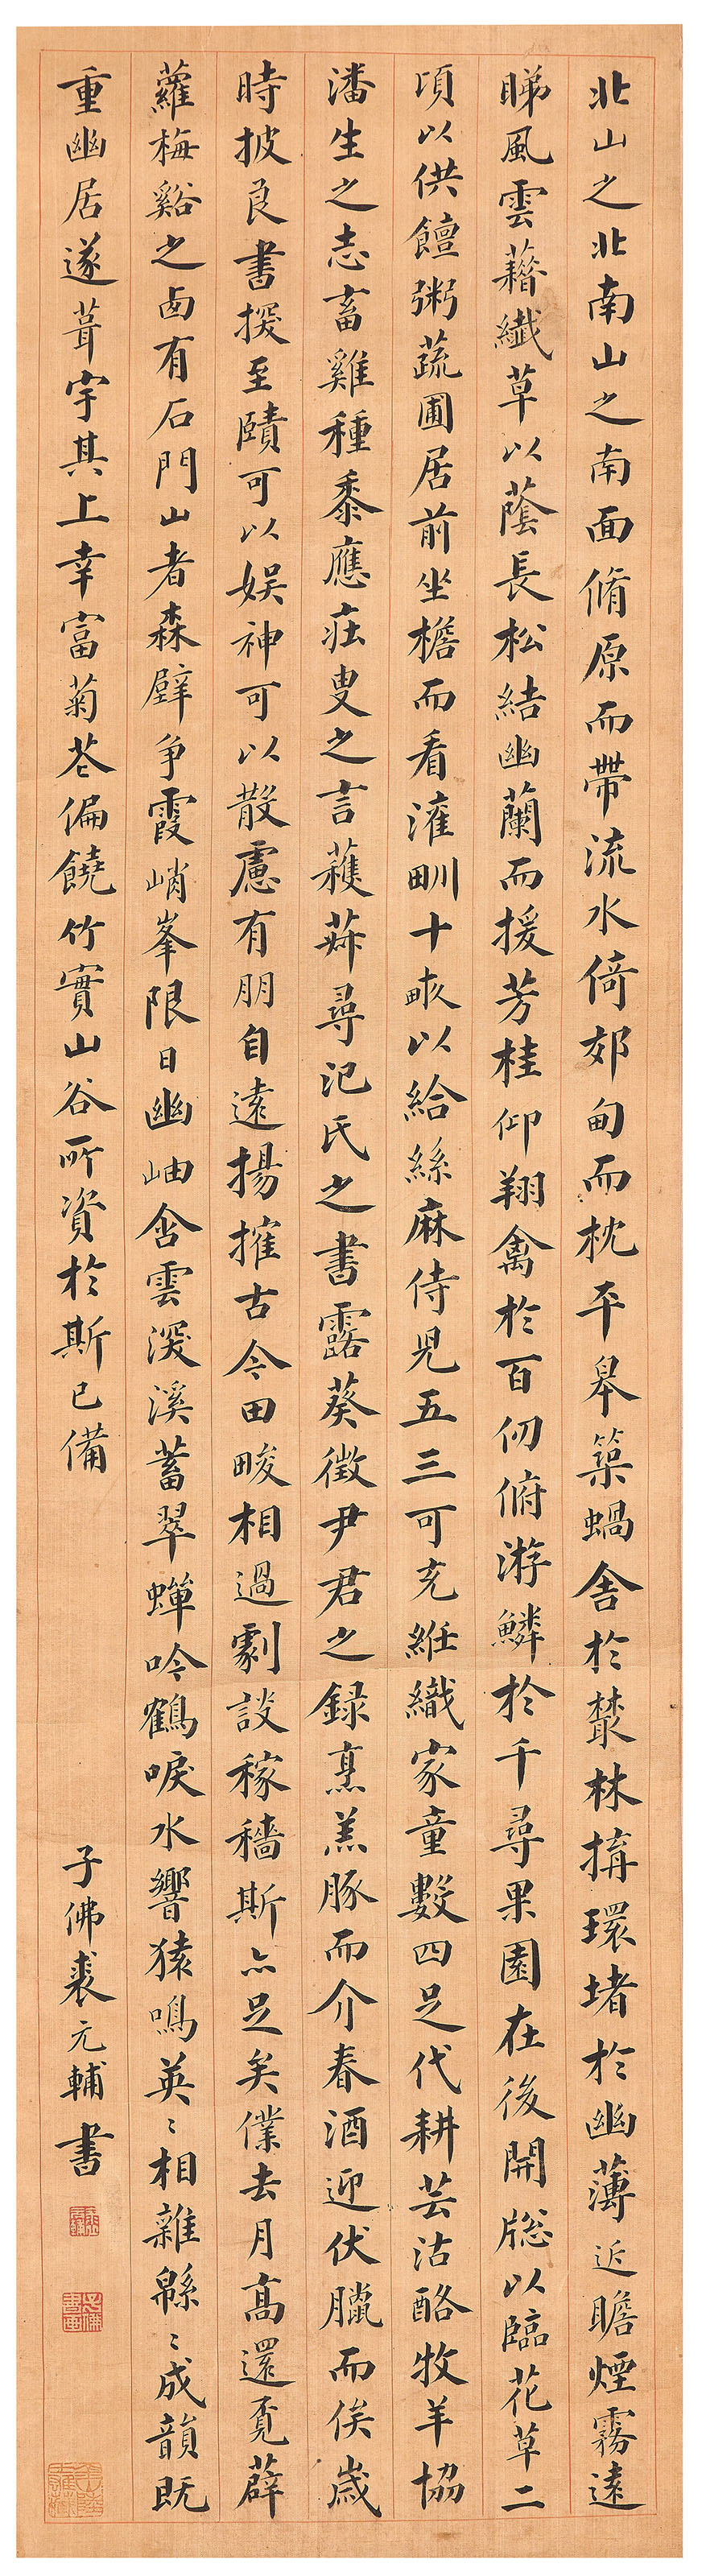 北山之北南山之南面脩原而帶流水倚郊甸而枕平皋築蝸舍於叢林搆環堵於幽薄近瞻煙霧遠
睇風雲藉纖草以蔭長松結幽蘭而援芳桂仰翔禽於百仞俯游鱗於千尋果園在後開牕以臨花草二
頃以供饘粥蔬圃居前坐檐而看灌甽十畝以給絲麻侍児五三可充絍織家童數四足代耕芸沽酪牧羊協
潘生之志畜雞種黍應莊叟之言蓻菻尋氾氏之書露葵徵尹君之録烹羔豚而介春酒迎伏臘而俟歲
時披良書探至賾可以娛神可以散慮有朋自遠揚搉古今田畯相過劇談稼穡斯亦足矣僕去月髙還覔薜
蘿梅谿之西有石門山者森壁爭霞峭峯限日幽岫含雲深溪蓄翠蟬吟鶴唳水響猿鳴英〻相雜緜〻成韻既
重幽居遂葺宇其上幸富菊花偏饒竹實山谷所資於斯已備
子佛裘元輔書